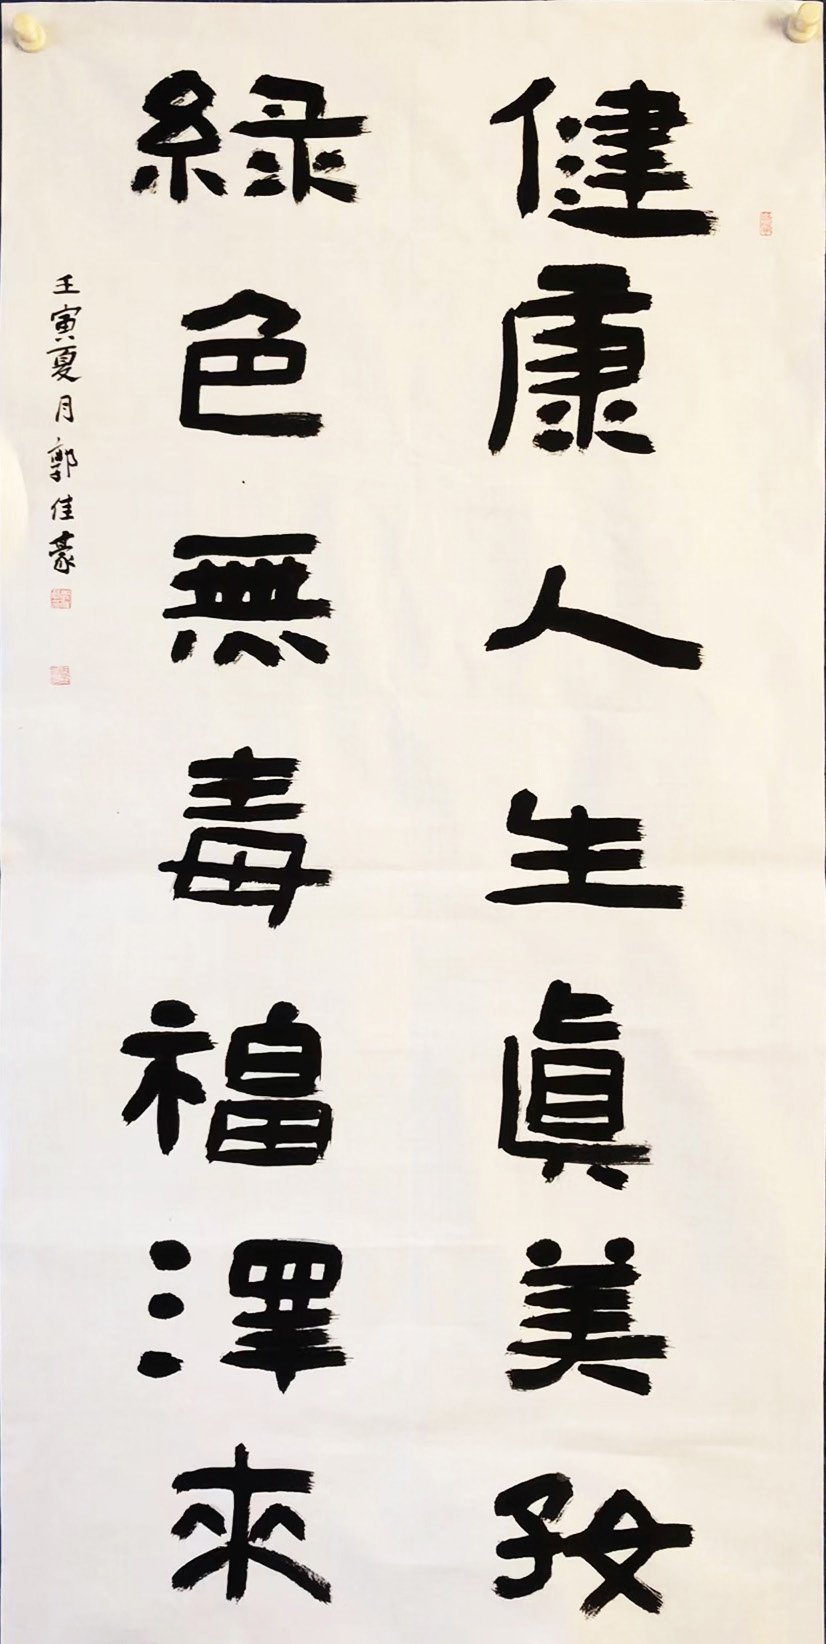 健康人生真美好
綠色無毒福澤來
壬寅夏月郭佳豪